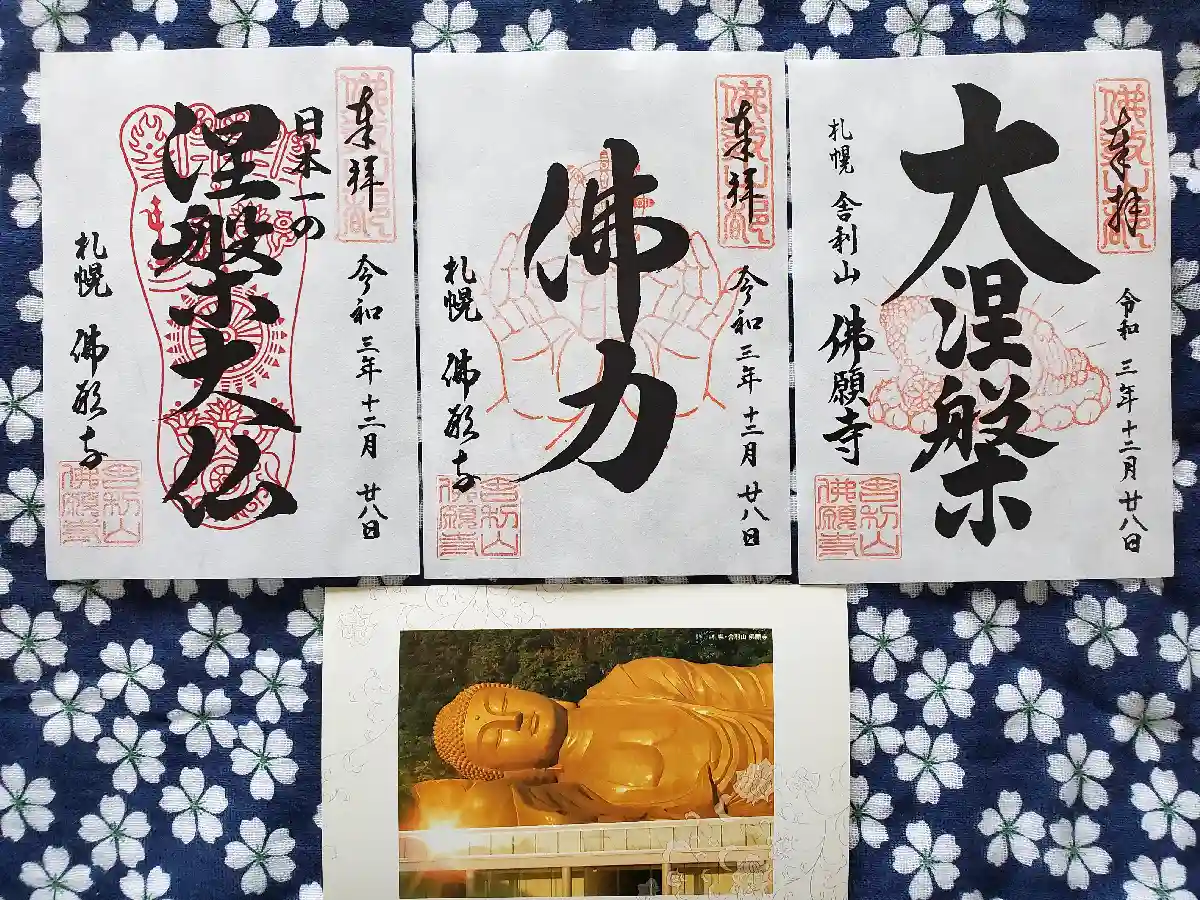 奉拝
令和三年十二月廿八日
大涅槃
札幌 舎利山 佛願寺
舎利山
佛願寺
奉拝
令和三年十二月廿八日
佛力
札幌 佛願寺
舎利山
佛願寺
奉拝
令和三年十二月廿八日
日本一の
涅槃大仏
札幌 佛願寺
舎利山
佛願寺
舎利山 佛願寺